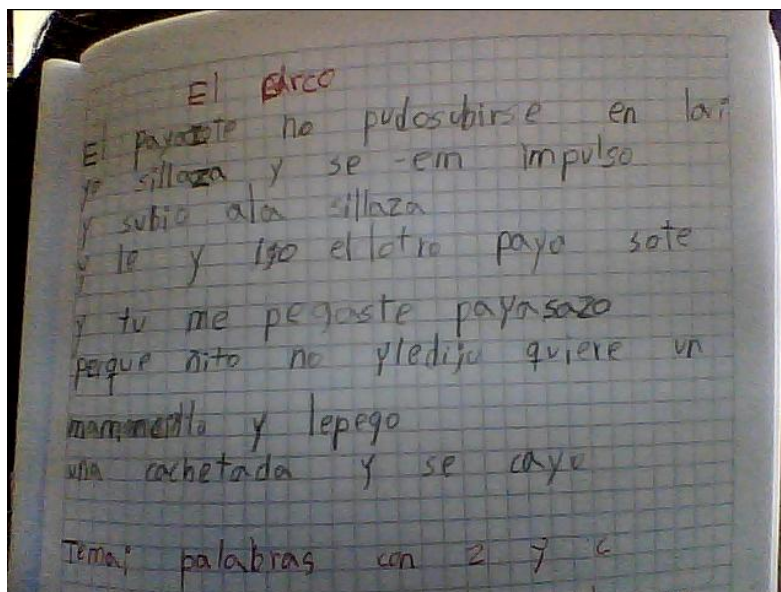 El
El payasote no pudosubirse en la
sillaza y se em impulso
y subio ala sillaza
y le y iso el lotro paya sote
y tu me pegaste payasazo
peque ñito no yledijo quiere un
y lepego
una cachetada y se cayo
Tema; palabras con z y c